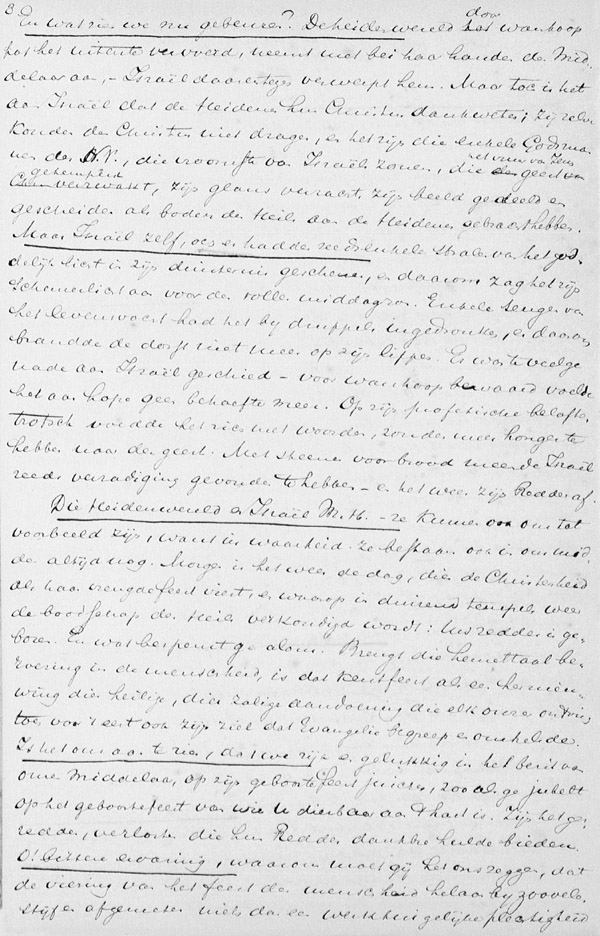 3.
En wat zien we nu gebeuren? De heidenwereld door wanhoop
tot het uiterste vervoerd, neemt met bei haar handen den Mid-
delaar aan, - Israël daarentegen verwerpt hem. Maar toch is het
aan Israël dat de Heidenen hun Christus dank weten; zij zelve
konden den Christus niet dragen, en het zijn die enkele Godsman-
nen des N.V., die vroomste van Israëls zonen, die den geest
verwacht, zijn glans verwacht, zijn beeld gedeeld en
gescheiden als boden des Heils aan de Heidenen gebracht hebben.
Maar Israël zelf, och er hadden reeds enkele stralen van het god-
delijk licht in zijn duisternis geschenen, en daarom zag het zijn
schemerlicht aan voor den vollen middagzon. Enkele teugen van
het levensvocht had het bij druppels ingedronken, en daarom
brandde de dorst niet meer op zijn lippen. Er was te veel ge-
nade aan Israël geschied - voor wanhoop bewaard voelde
het aan hope geen behoefte meer. Op zijn profetische beloften
trotsch voedde het zich met woorden, zonder meer honger te
hebben naar den geest. Met steenen voor brood meende Israël
reeds verzadiging gevonden te hebben - en het wees zijn Redder af.
Die Heidenwereld en Israël M.H. - ze kunnen ook ons tot
voorbeeld zijn, want in waarheid ze bestaan ook in ons mid-
den altijd nog. Morgen is het weer de dag, dien de Christenheid
als haar vreugdefeest viert, en waarop in duizend tempels weer
de boodschap des Heils verkondigd wordt: Uw redder is ge-
boren. En wat bespeurt ge alom. Brengt die hemeltaal be-
roering in de menschheid, is dat kerstfeest als een hernieu-
wing dier heilige, dier zalige aandoening die elk onzer ontving
toen voor 't eerst ook zijn ziel dat Evangelie begreep en omhelsde.
Is het ons aan te zien, dat we rijk en gelukkig in het bezit van
onze Middelaar, op zijn geboortefeest juichen, zooals ge jubelt
op het geboortefeest van wie U dierbaar aan 't hart is. Zijn het ge-
redden, verlosten die hun Redder dankbre hulde bieden.
O! bittere ervaring, waarom moet gij het ons zeggen, dat
de viering van het feest der menschheid helaas bij zoovelen
stijf en afgemeten niets dan een werktuigelijke plechtigheid